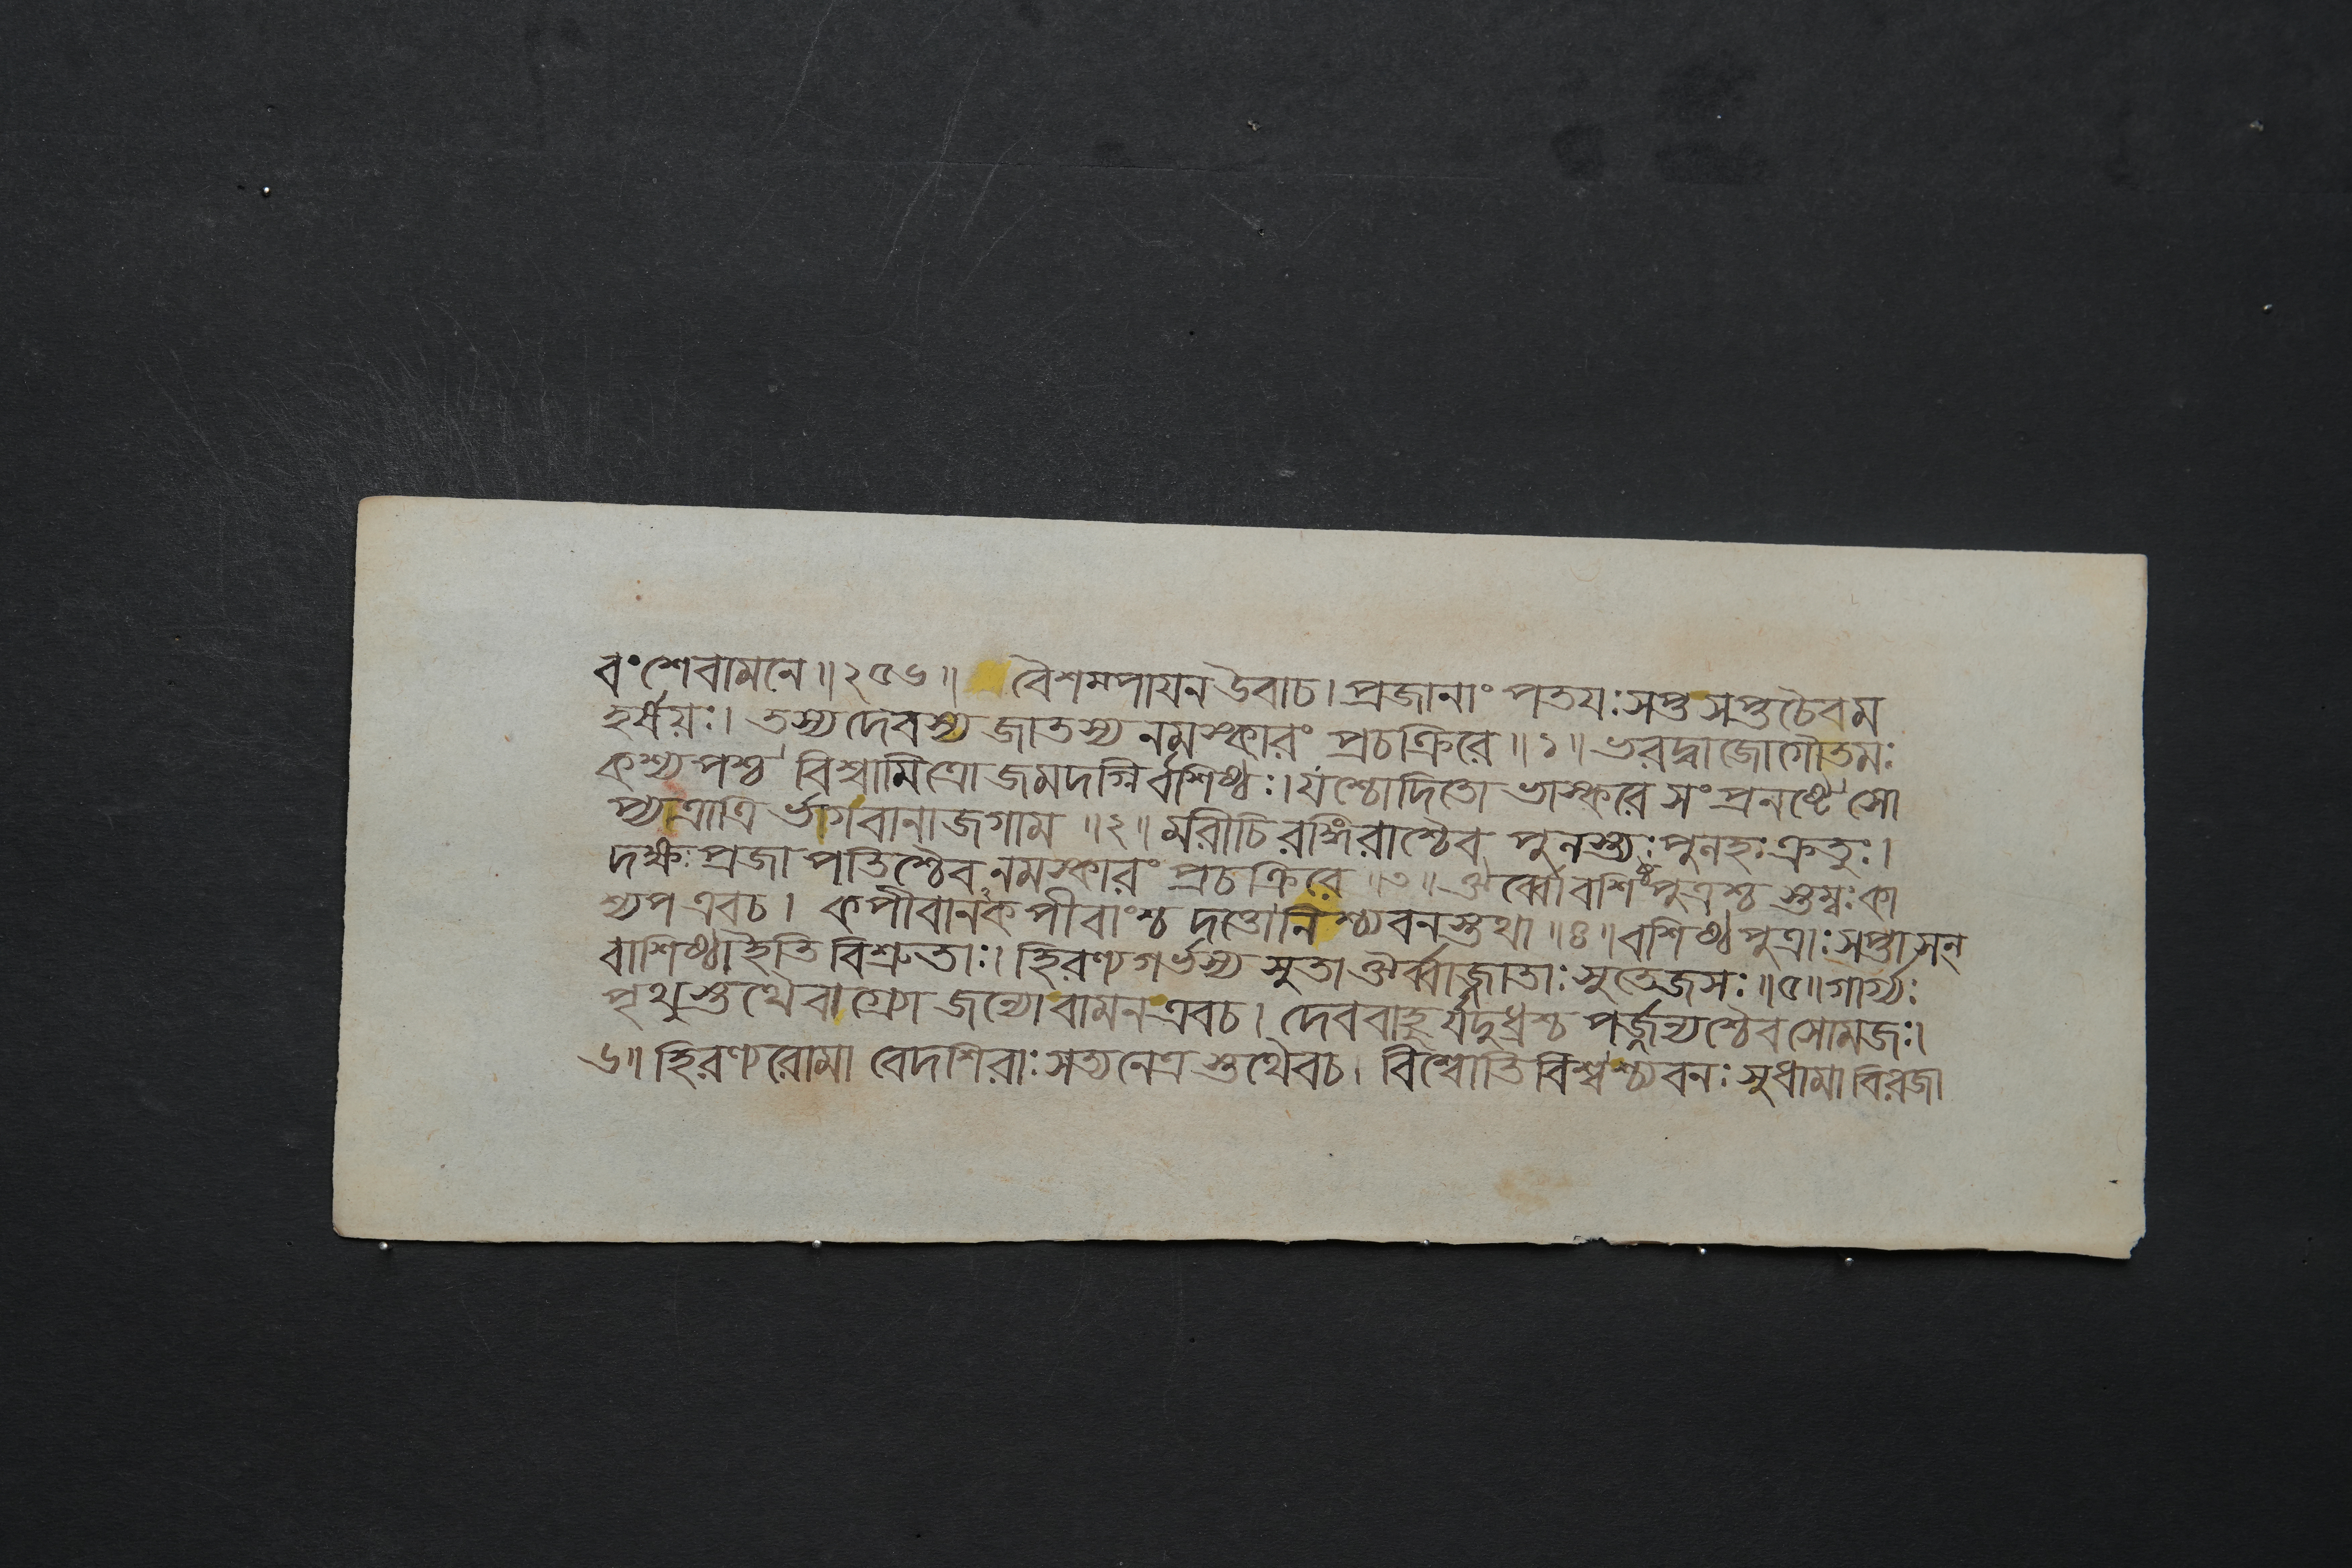 বংশেবামনে॥২৫৬॥ বৈশম্পায়ন উবাচ। প্রজানাং পতয়ঃ সপ্ত সপ্ত চৈব ম
হর্ষয়ঃ। তস্য দেবস্য জাতস্য নমস্কারং প্রচক্রিরে॥১॥ ভরদ্বাজো গৌতমঃ
কশ্যপশ্চ বিশ্বামিত্রো জমদগ্নির্বশিষ্ঠঃ। যশ্চোদিতো ভাস্করে সংপ্রনষ্টে সো
প্যত্রাত্রি র্ভগবানাজগাম॥২॥ মরীচিরঙ্গিরাশ্চৈব পুলস্ত্যঃ পুলহঃ ক্রতুঃ।
দক্ষঃ প্রজাপতিশ্চৈব নমস্কারং প্রচক্রিরে॥৩॥ ঔর্ব্বো বশিষ্ঠপুত্রশ্চ স্তম্বঃ কা
শ্যপ এবচ। কপীবানকপীবাংশ্চ দত্তোনিশ্চ্যবনস্তথা॥৪॥ বশিষ্ঠপুত্রাঃ সপ্তাসন্
বাশিষ্ঠা ইতি বিশ্রুতাঃ। হিরণ্যগর্ভস্য সুতা ঔর্ব্বাজ্জাতাঃ সুতেজসঃ॥৫॥ গার্গ্যঃ
পৃথুস্তথৈবাগ্র্যো জন্যো বামন এবচ। দেববাহুর্যদুধ্রশ্চ পর্জ্জন্যশ্চৈব সোমজঃ।
৬॥ হিরণ্যরোমা বেদশিরাঃ সত্যনেত্রস্তথৈবচ। বিশ্বোতিবিশ্বশ্চ্যবনঃ সুধামা বিরজা